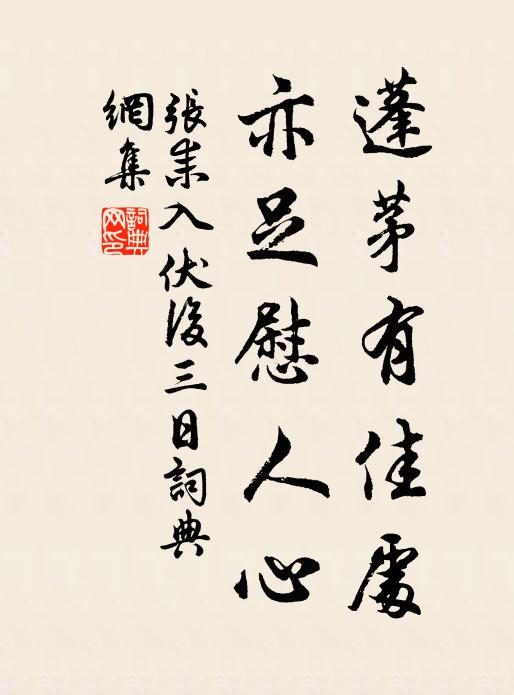 蓬茅有佳處
亦足慰人心
張耒入伏後三日詞典
網集
詞典網印